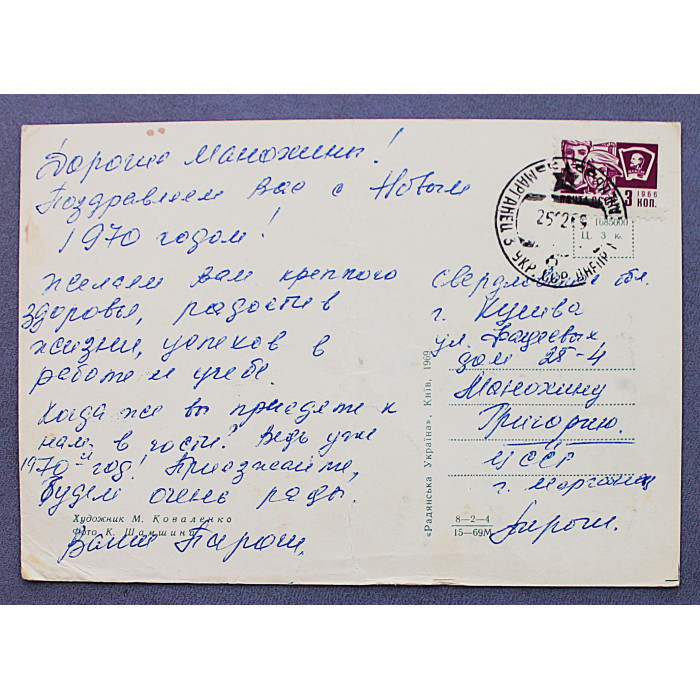 Дорогие Манохины!
Поздравляем Вас с Новым
1970 годом!
Желаем вам крепкого
здоровья, радости в
жизни, успехов в
работе и учебе.
Когда же вы приедете к
нам в гости? Ведь уже
1970-й год! Приезжайте,
будем очень рады.
Ваши
Художник М. Коваленко
Фото К. Шамшина
«Радянська Україна». Київ, 1969
8—2—4
15—69М
1966
3 КОП.
ПОЧТА СССР
МАРГАНЕЦ 3 УКР. ССР. ДНЕПР
1685000
Ц. 3 к.
Свердловская обл.
г. Кушва
ул. Фадеевых
дом 28-4
Манохину
Григорию.
УССР
г. Марганец